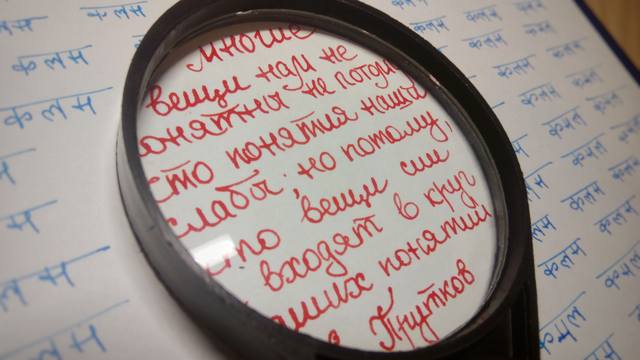 कलम कलम
कलम
कलम
कलम
कलम
Многие
вещи нам не
онятны не потом
что понятия наши
слабы, но потому,
что вещи сии
входят в круг
аших понятий
Прутков
कलम
कलम कलम
कलम कलम
कलम कलम
कलम कलम
कलम कलम
कलम कलम